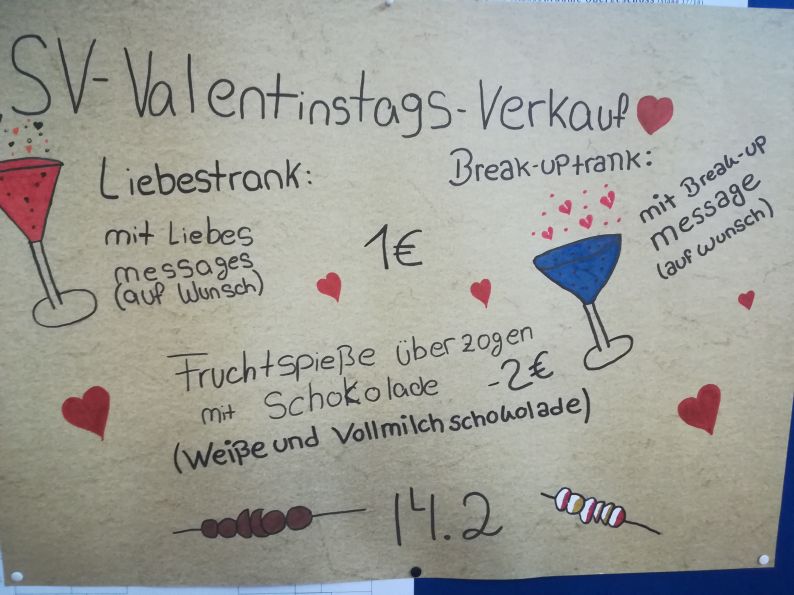 SV-Valentinstags-Verkauf
Liebestrank:
mit Liebes
messages
(auf Wunsch)
1€
Break-uptrank:
mit Break-up
message
(auf wunsch)
Fruchtspieße überzogen
mit Schokolade -2€
(Weiße und Vollmilchschokolade)
14.2